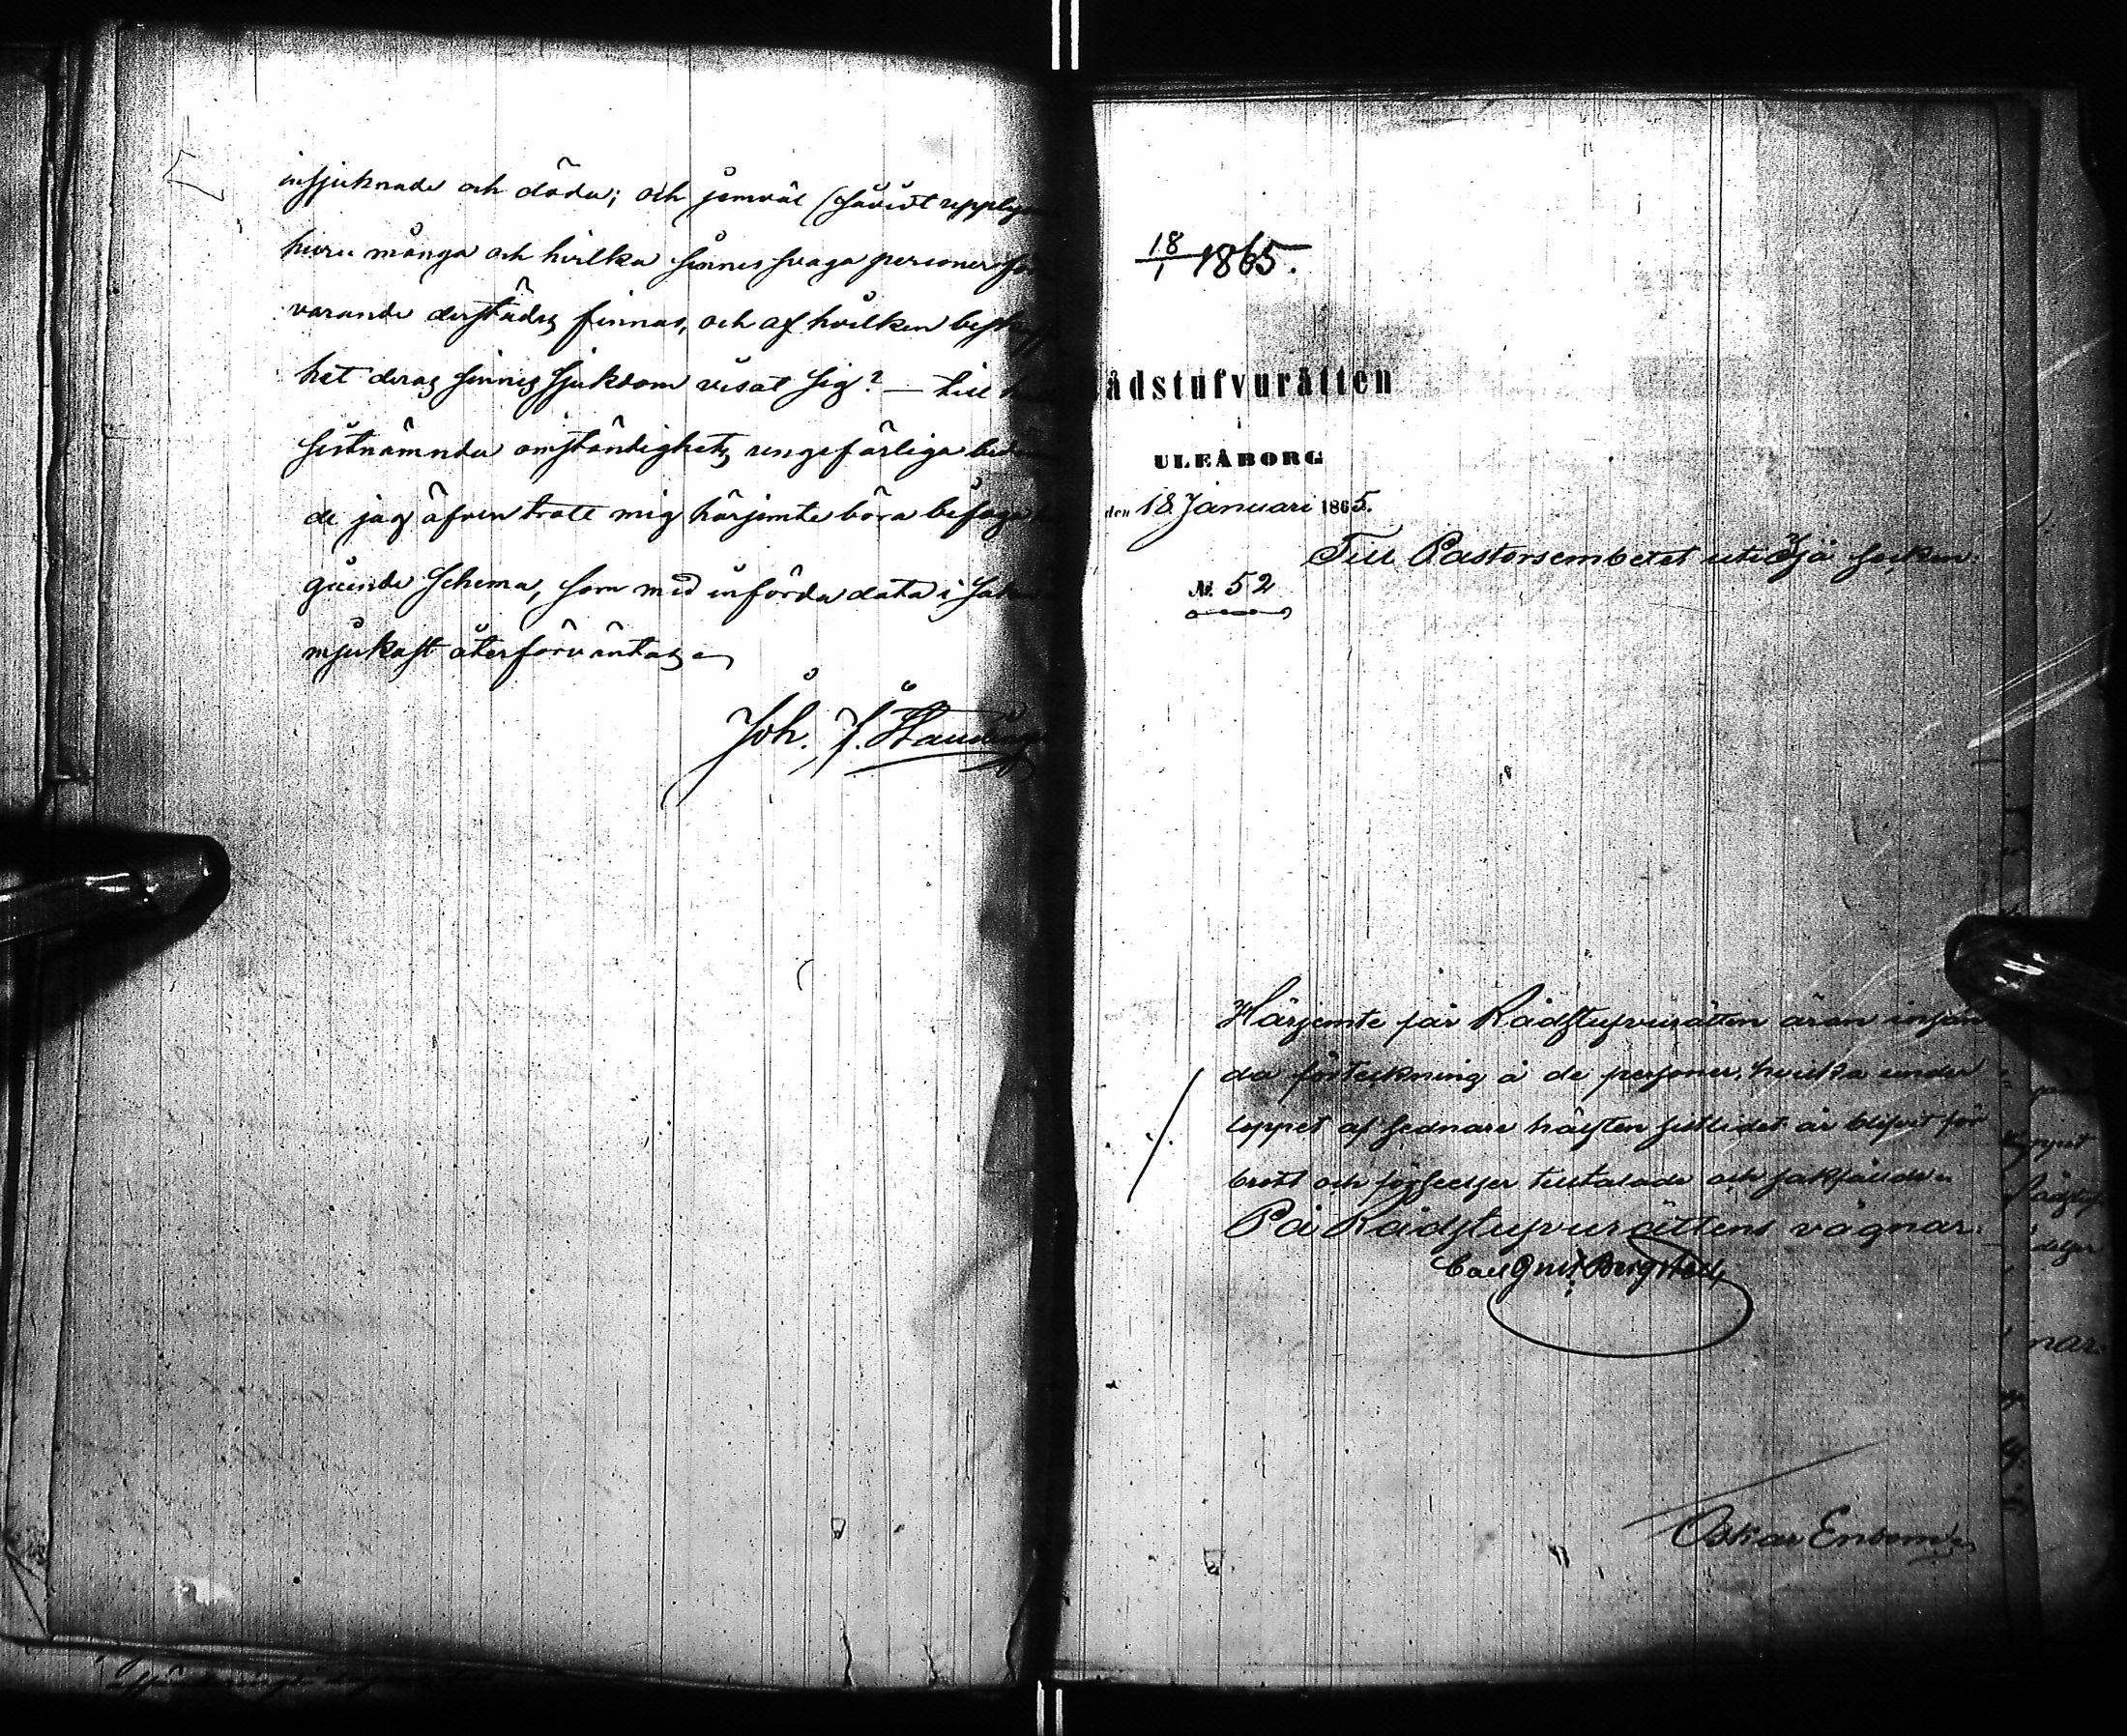 insjuknade och döda; och jemväl (såvidt upplys
huru många och hvilka sinnes svaga personer
varande derstädes finnas, och af hvilken beskaff
het deras sinnes sjukdom visat sig? — till
sistnämnda omständighets ungefärliga
de jag äfven trott mig härjemte böra bifoga
gående Schema, som med införda data i
mjukast återförväntas
Joh. F.
18/1 1865.
ådstufvurätten
i
ULEÅBORG
den 18 Januari 1865.
Till Pastorsembetet uti Ijo socken.
№ 52
Härjemte får Rådstufvurätten äran insän
da förteckning å de personer, hvilka under
loppet af sednare hälften sistlidet år blifvit för
brott och förseelser tilltalade och sakfällde.
På Rådstufvurättens vägnar:
Carl Gust Bergstedt
Oskar Enbom